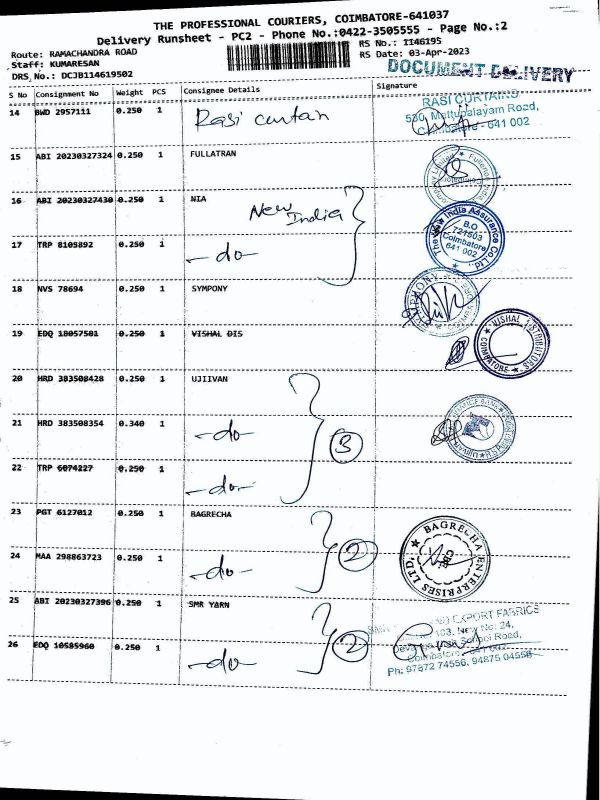 THE PROFESSIONAL COURIERS, COIMBATORE-641037
Delivery Runsheet - PC2 - Phone No.:0422-3505555 - Page No.:2
Route: RAMACHANDRA ROAD
RS No.: II46195
Staff: KUMARESAN
RS Date: 03-Apr-2023
DRS No.: DCJB114619502
DOCUMENT DELIVERY
S No Consignment No Weight PCS Consignee Details Signature
14 BWD 2957111 0.250 1 Rasi curtan
RASI CURTAINS
530, Mettupalayam Road,
Coimbatore - 641 002
15 ABI 20230327324 0.250 1 FULLATRAN
16 ABI 20230327430 0.250 1 NIA
New India
The New India Assurance Co.Ltd.
B.O
721503
Coimbatore
641 002
17 TRP 8105892 0.250 1 -do-
18 NVS 78694 0.250 1 SYMPONY
19 EDQ 18057501 0.250 1 VISHAL DIS
VISHAL DISTRIBUTORS
COIMBATORE
20 HRD 383508428 0.250 1 UJIIVAN
21 HRD 383508354 0.340 1 -do- 3
22 TRP 6074227 0.250 1 -do-
23 PGT 6127012 0.250 1 BAGRECHA
BAGRECHA ENTERPRISES LTD.
CBE
24 MAA 298863723 0.250 1 -do- 2
25 ABI 20230327396 0.250 1 SMR YARN
EXPORT FABRICS
103, New No: 24,
School Road,
Coimbatore - 641 002
Ph: 97872 74556, 94875 04556
26 EDQ 10585960 0.250 1 -do- 2